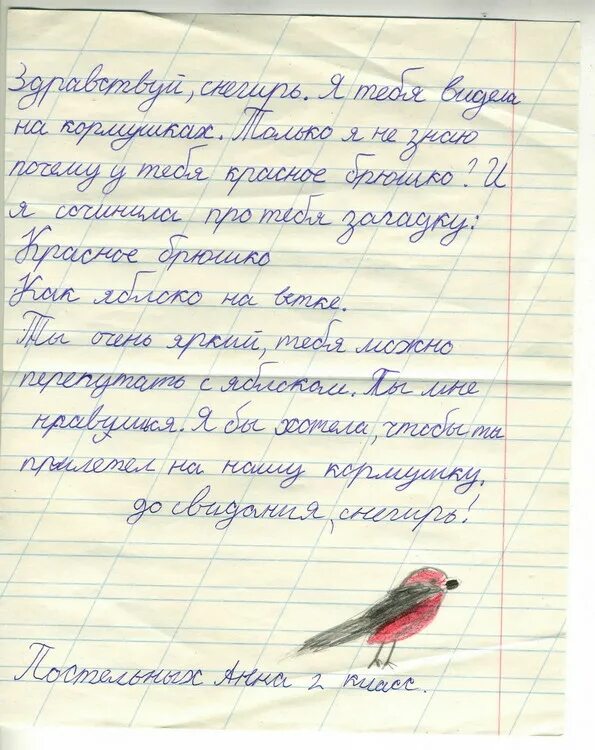 Здравствуй, снегирь. Я тебя видела
на кормушках. Только я не знаю
почему у тебя красное брюшко? И
я сочинила про тебя загадку:
Красное брюшко
Как яблоко на ветке.
Ты очень яркий, тебя можно
перепутать с яблоком. Ты мне
нравишься. Я бы хотела, чтобы ты
прилетел на нашу кормушку.
до свидания, снегирь!
Постельных Анна 2 класс.